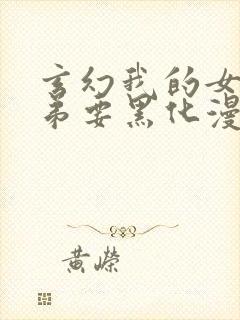 玄幻我的女
弟要黑化漫
黄嵘